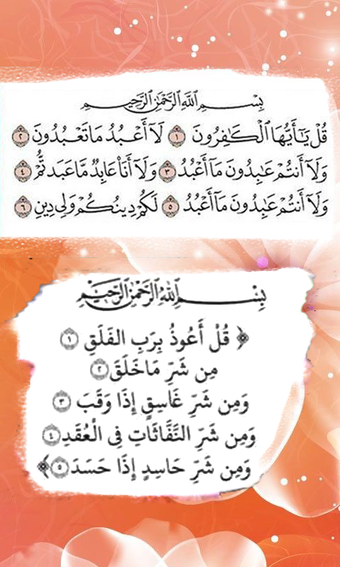 بِسْمِ اللَّهِ الرَّحْمَٰنِ الرَّحِيمِ
قُلْ يَٰٓأَيُّهَا ٱلْكَٰفِرُونَ ١ لَآ أَعْبُدُ مَا تَعْبُدُونَ ٢
وَلَآ أَنتُمْ عَٰبِدُونَ مَآ أَعْبُدُ ٣ وَلَآ أَنَا۠ عَابِدٌ مَّا عَبَدتُّمْ ٤
وَلَآ أَنتُمْ عَٰبِدُونَ مَآ أَعْبُدُ ٥ لَكُمْ دِينُكُمْ وَلِىَ دِينِ ٦
بِسْمِ اللَّهِ الرَّحْمَٰنِ الرَّحِيمِ
﴿ قُلْ أَعُوذُ بِرَبِّ الفَلَقِ ١
مِن شَرِّ مَا خَلَقَ ٢
وَمِن شَرِّ غَاسِقٍ إِذَا وَقَبَ ٣
وَمِن شَرِّ النَّفَّاثَاتِ فِى الْعُقَدِ ٤
وَمِن شَرِّ حَاسِدٍ إِذَا حَسَدَ ٥ ﴾